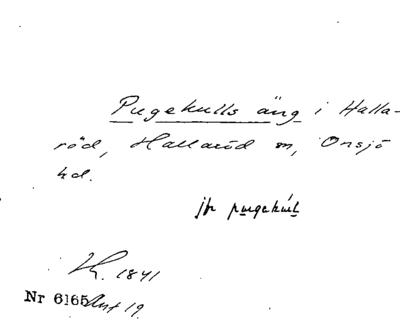 Pugekulls äng i Halla-
röd, Hallaröd sn, Onsjö
hd.
jfr pugekúl
1841
Nr 6165 Ant 19.